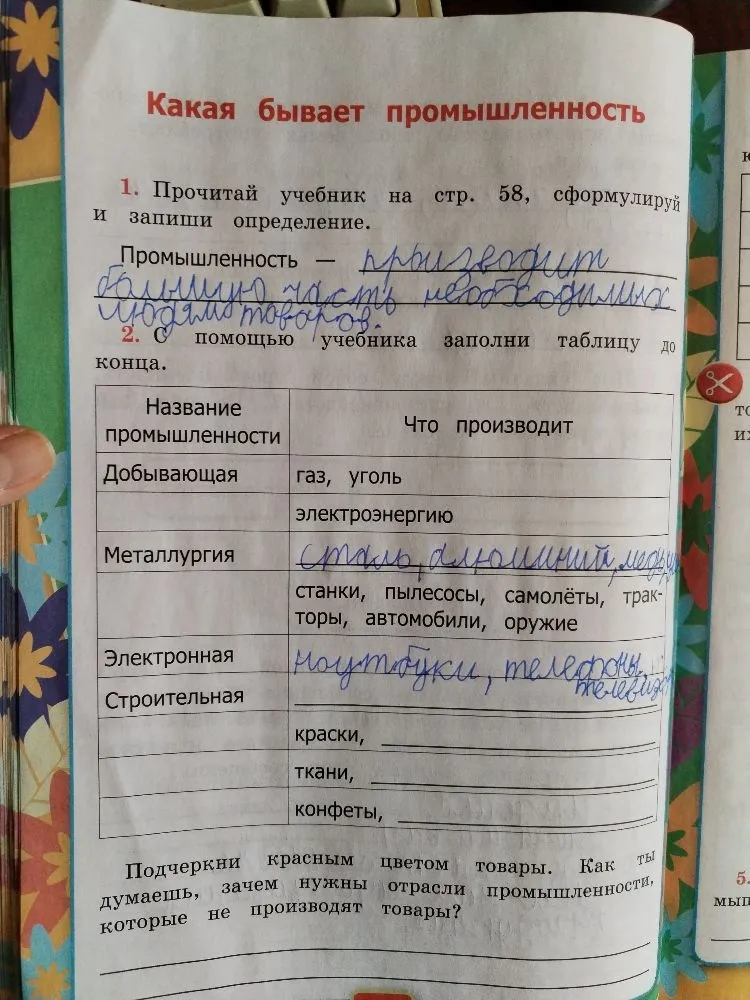 Какая бывает промышленность
1. Прочитай учебник на стр. 58, сформулируй
и запиши определение.
Промышленность — производит
большую часть необходимых
людям товаров.
2. С помощью учебника заполни таблицу до
конца.
Название
промышленности
Что производит
Добывающая
газ, уголь
электроэнергию
Металлургия
сталь, алюминий,
станки, пылесосы, самолёты, трак-
торы, автомобили, оружие
Электронная
ноутбуки, телефоны,
Строительная
краски,
ткани,
конфеты,
Подчеркни красным цветом товары. Как ты
думаешь, зачем нужны отрасли промышленности,
которые не производят товары?
ю
то
их
5.
мып